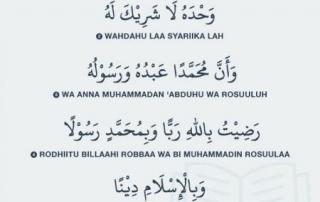 وَحْدَهُ لَا شَرِيْكَ لَهُ
2 WAHDAHU LAA SYARIIKA LAH
وَأَنَّ مُحَمَّدًا عَبْدُهُ وَرَسُوْلُهُ
3 WA ANNA MUHAMMADAN 'ABDUHU WA ROSUULUH
رَضِيْتُ بِاللهِ رَبًّا وَبِمُحَمَّدٍ رَسُوْلًا
4 RODHIITU BILLAAHI ROBBAA WA BI MUHAMMADIN ROSUULAA
وَبِالْإِسْلَامِ دِيْنًا